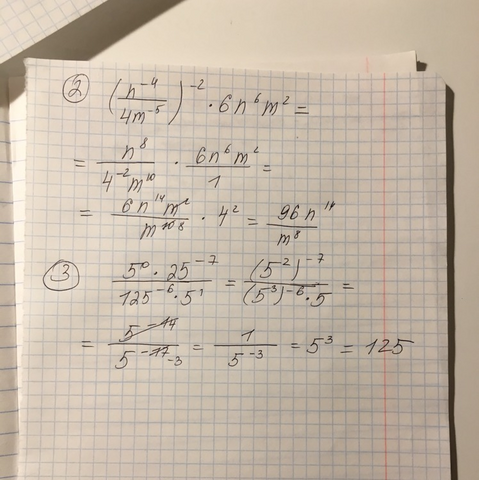 ② (n⁻⁴/4m⁻⁵)⁻² · 6n⁶m² =
= n⁸/4⁻²m¹⁰ · 6n⁶m²/1 =
= 6n¹⁴m²/m¹⁰ ⁸ · 4² = 96n¹⁴/m⁸
③ 5⁰ · 25⁻⁷/125⁻⁶ · 5¹ = (5²)⁻⁷/(5³)⁻⁶ · 5 =
= 5⁻¹⁴/5⁻¹⁷ ⁻³ = 1/5⁻³ = 5³ = 125